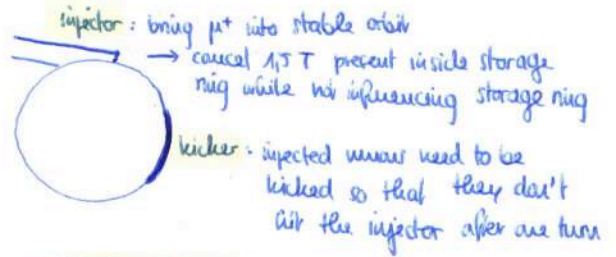 injector: bring μ⁺ into stable orbit
→ cancel 1,5 T present inside storage
ring while not influencing storage ring
kicker: injected muons need to be
kicked so that they don't
hit the injector after one turn